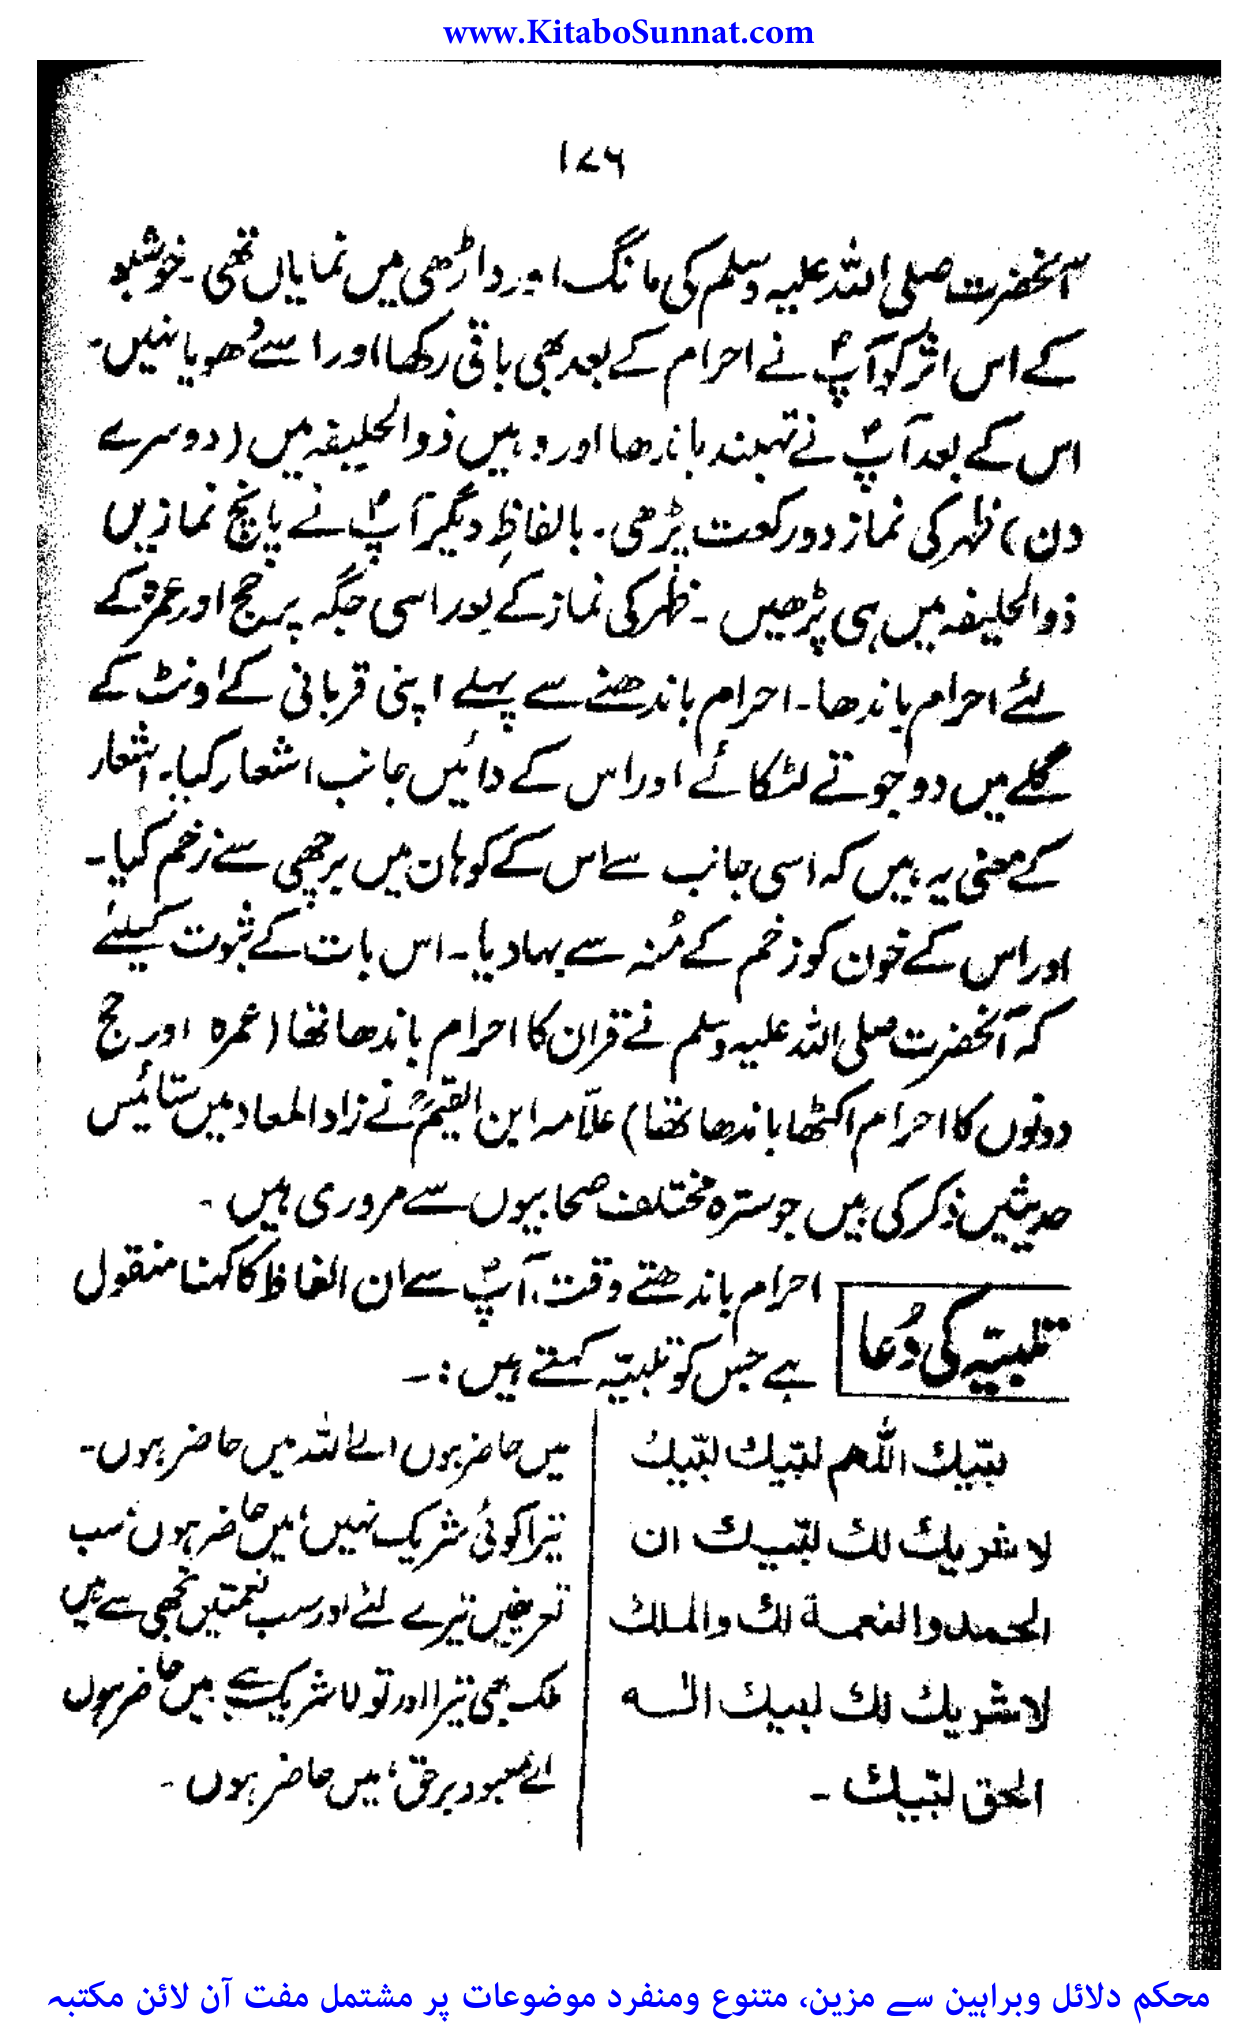 www.KitaboSunnat.com
۱۷۶
آنحضرت صلی اللہ علیہ وسلم کی مانگ اور داڑھی میں نمایاں تھی۔ خوشبو
کے اس اثر کو آپؐ نے احرام کے بعد بھی باقی رکھا اور اسے دُھویا نہیں۔
اس کے بعد آپؐ نے تہبند باندھا اور وہیں ذوالحلیفہ میں (دوسرے
دن) ظہر کی نماز دو رکعت پڑھی۔ بالفاظِ دیگر آپؐ نے پانچ نمازیں
ذوالحلیفہ میں ہی پڑھیں۔ ظہر کی نماز کے بعد اسی جگہ پر حج اور عمرہ کے
لئے احرام باندھا۔ احرام باندھنے سے پہلے اپنی قربانی کے اونٹ کے
گلے میں دو جوتے لٹکائے اور اس کے دائیں جانب اشعار کیا۔ اشعار
کے معنی یہ ہیں کہ اسی جانب سے اس کے کوہان میں برچھی سے زخم کیا۔
اور اس کے خون کو زخم کے مُنہ سے بہا دیا۔ اس بات کے ثبوت کیلئے
کہ آنحضرت صلی اللہ علیہ وسلم نے قران کا احرام باندھا تھا (عمرہ اور حج
دونوں کا احرام اکٹھا باندھا تھا) علّامہ ابن القیمؒ نے زاد المعاد میں ستائیس
حدیثیں ذکر کی ہیں جو سترہ مختلف صحابیوں سے مروری ہیں۔
تلبیّہ کی دُعا
احرام باندھتے وقت، آپؐ سے ان الفاظ کا کہنا منقول
ہے جس کو تلبیّہ کہتے ہیں:۔
لبّیك اللّٰھم لبّیك لبّیك
لا شریك لك لبّیك ان
الحمد والنعمة لك والملك
لا شریك لك لبیك الٰـه
الحق لبّیك -
میں حاضر ہوں اے اللہ میں حاضر ہوں۔
تیرا کوئی شریک نہیں، میں حاضر ہوں، سب
تعریفیں تیرے لئے اور سب نعمتیں تجھی سے ہیں
ملک بھی تیرا اور تو لا شریک ہے، میں حاضر ہوں
اے معبود برحق، میں حاضر ہوں۔
محکم دلائل وبراہین سے مزین، متنوع ومنفرد موضوعات پر مشتمل مفت آن لائن مکتبہ